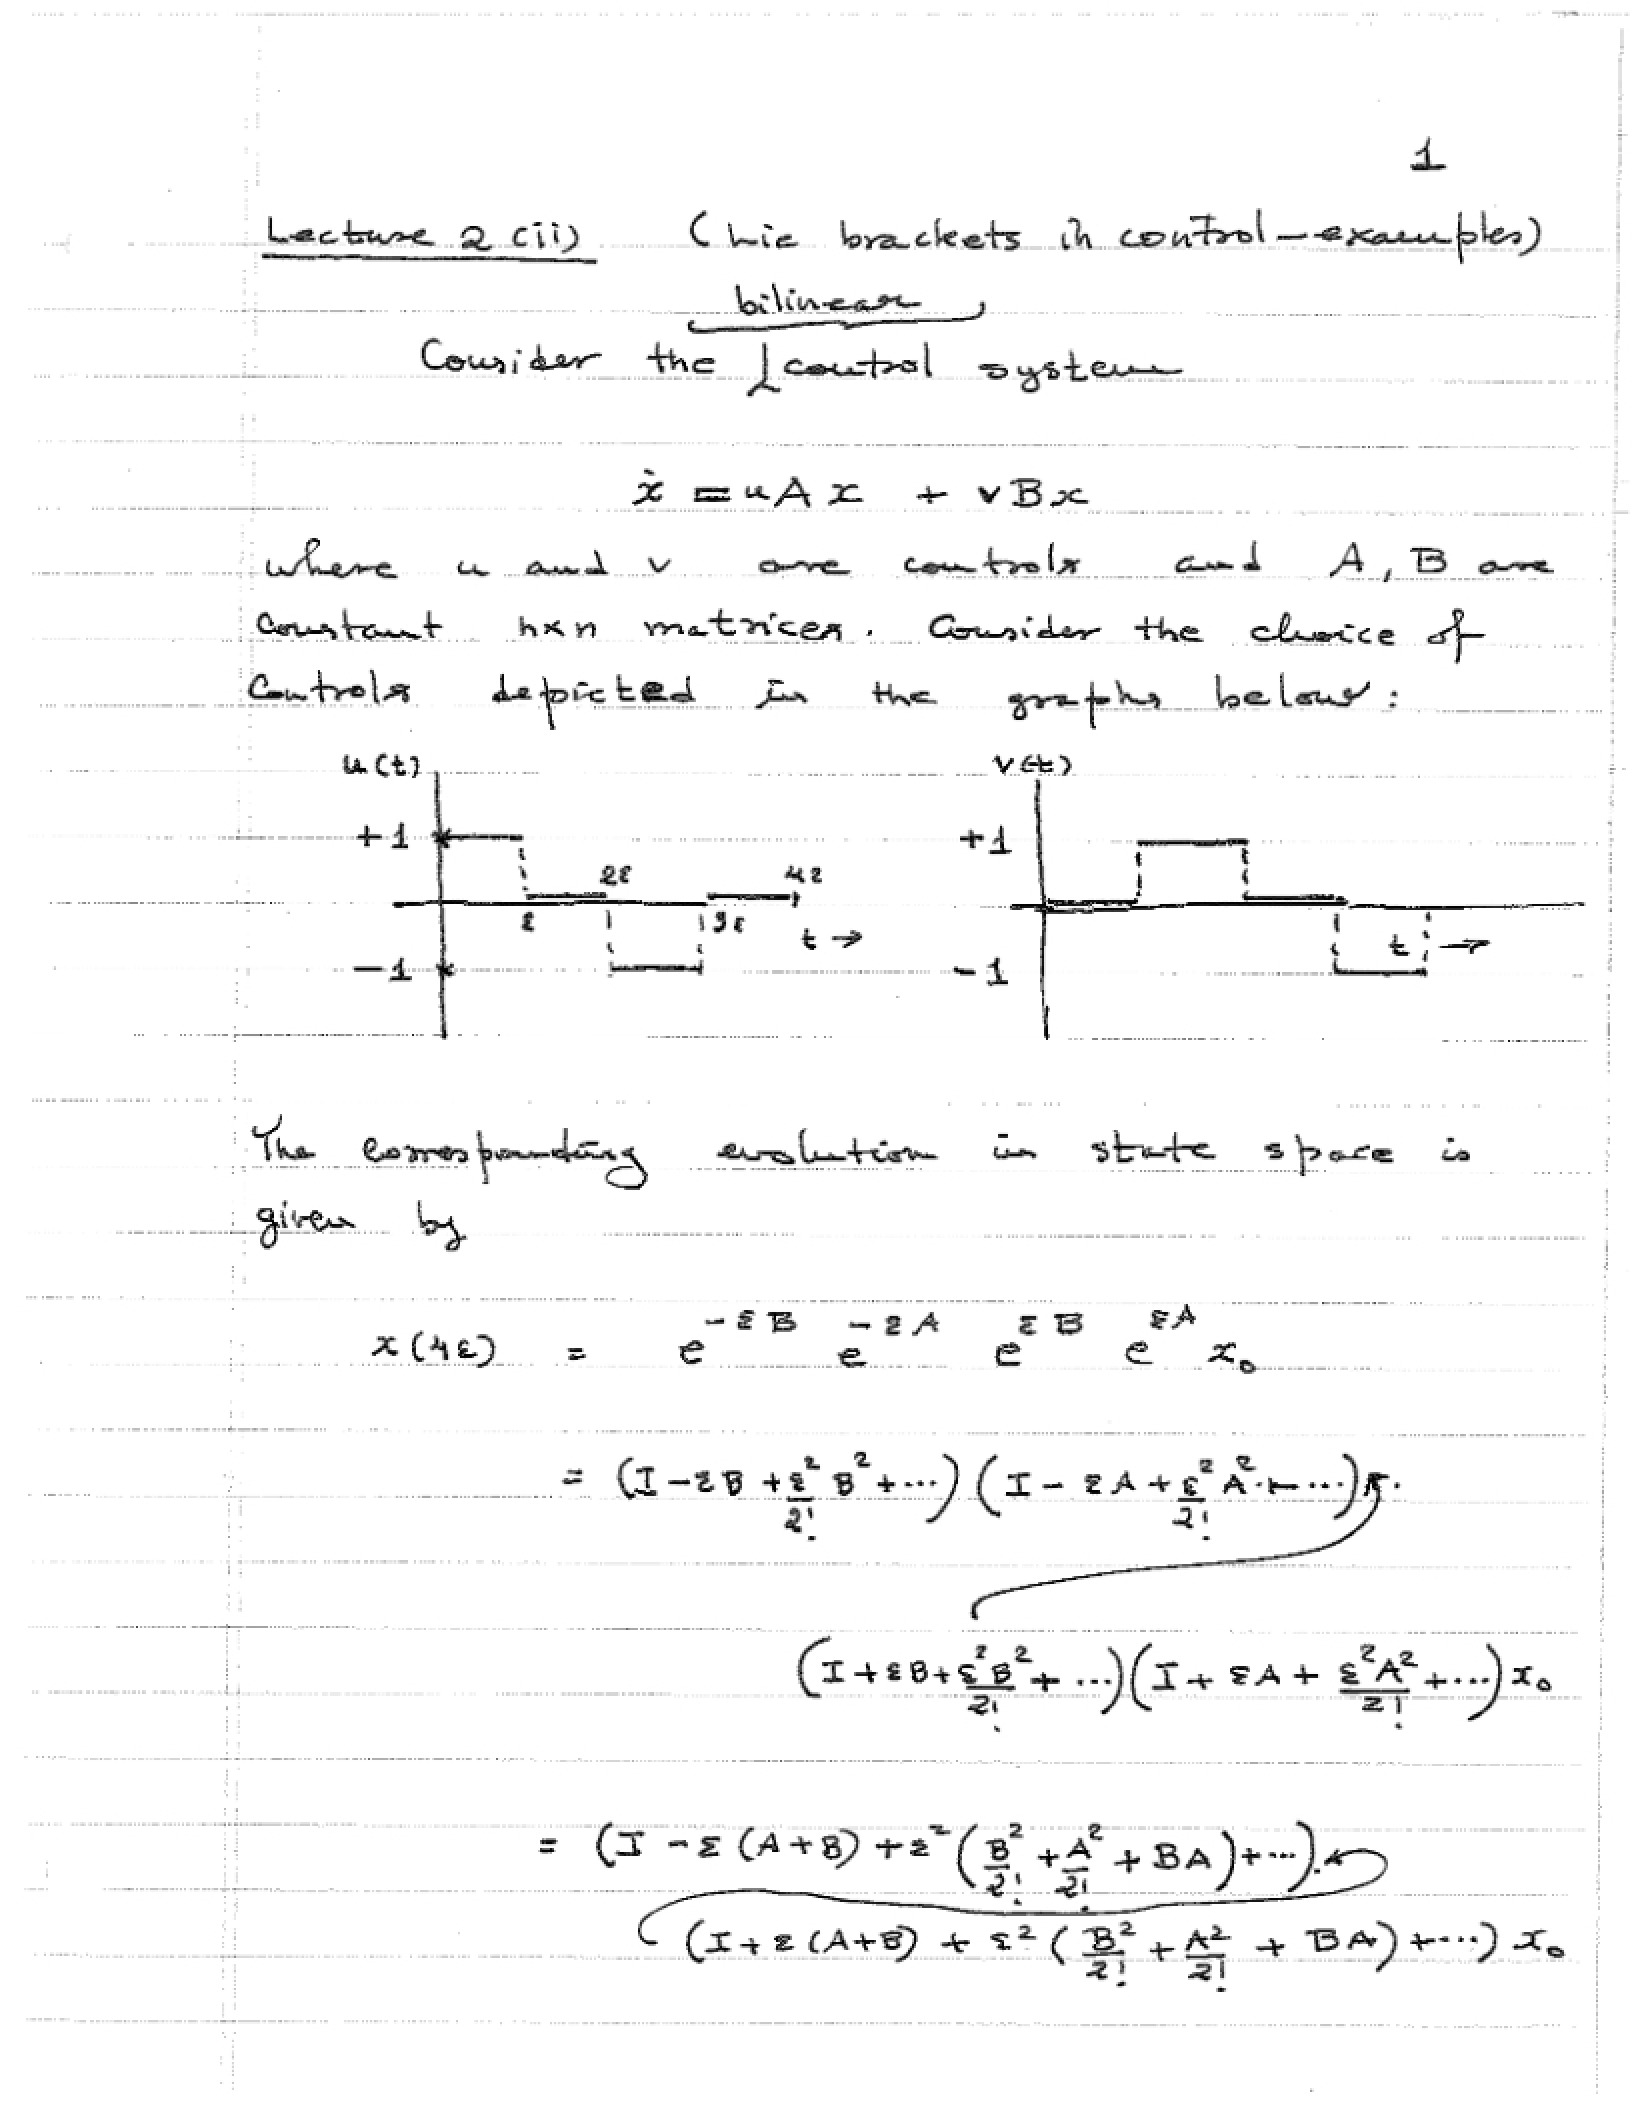 1
Lecture 2 (ii) (Lie brackets in control-examples)
bilinear
Consider the control system
ẋ = uAx + vBx
where u and v are controls and A, B are
constant n×n matrices. Consider the choice of
controls depicted in the graphs below:
u(t) v(t)
+1 2ε 4ε +1
ε 3ε t → t →
-1 -1
The corresponding evolution in state space is
given by
x(4ε) = e^{-εB} e^{-εA} e^{εB} e^{εA} x₀
= (I - εB + ε²/2! B² + ...) (I - εA + ε²/2! A² + ...) ·
(I + εB + ε²B²/2! + ...) (I + εA + ε²A²/2! + ...) x₀
= (I - ε(A+B) + ε² (B²/2! + A²/2! + BA) + ...) ·
(I + ε(A+B) + ε² (B²/2! + A²/2! + BA) + ...) x₀